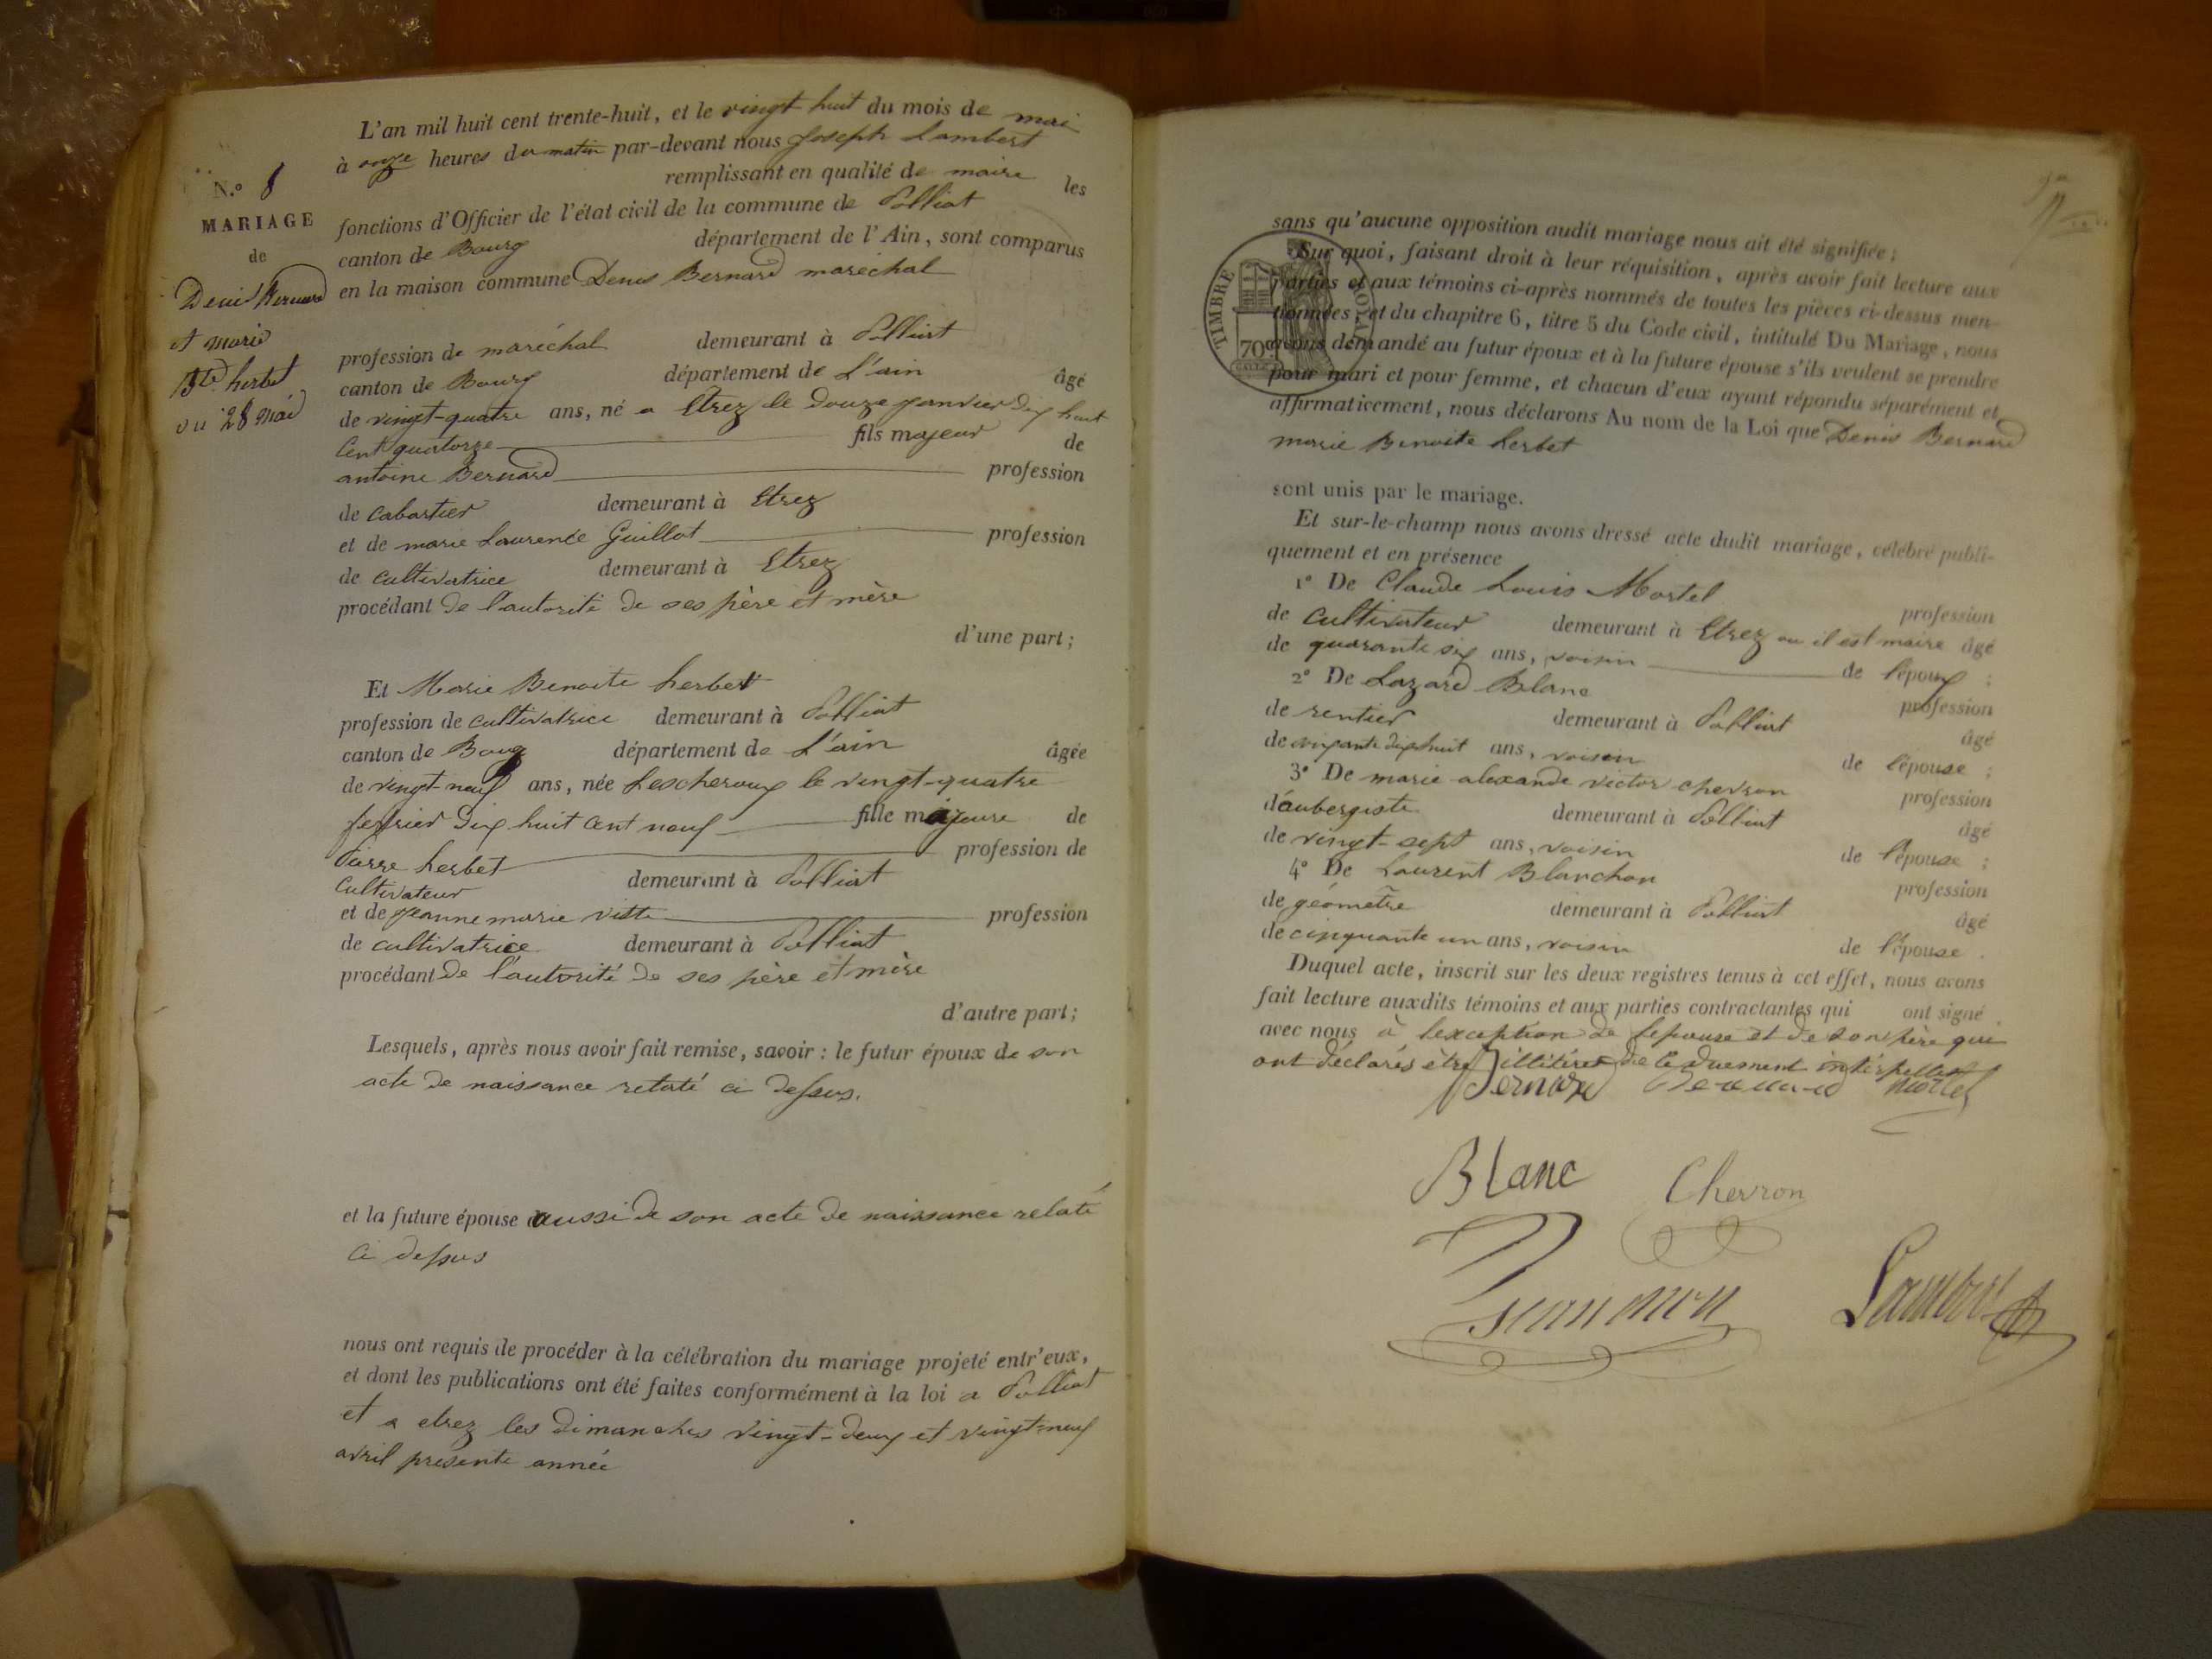 L'an mil huit cent trente-huit, et le vingt huit du mois de mai
à onze heures du matin par-devant nous Joseph Lambert
remplissant en qualité de maire les
fonctions d'Officier de l'état civil de la commune de Polliat
canton de Bourg département de l'Ain, sont comparus
en la maison commune Denis Bernard maréchal
N.º 8
MARIAGE
de
Denis Bernard
et marie
Bte herbet
du 28 mai
profession de maréchal demeurant à Polliat
canton de Bourg département de L'ain âgé
de vingt-quatre ans, né a Etrez le douze janvier dix huit
Cent quatorze fils majeur de
antoine Bernard profession
de cabartier demeurant à Etrez
et de marie Laurence Guillot profession
de cultivatrice demeurant à Etrez
procédant de l'autorité de ses père et mère
d'une part;
Et Marie Benoite herbet
profession de cultivatrice demeurant à Polliat
canton de Boug département de L'ain âgée
de vingt-neuf ans, née Lescheroux le vingt-quatre
fevrier dix huit cent neuf fille majeure de
Pierre herbet profession de
Cultivateur demeurant à Polliat
et de jeanne marie vitte profession
de cultivatrice demeurant à Polliat
procédant de l'autorité de ses père et mère
d'autre part;
Lesquels, après nous avoir fait remise, savoir: le futur époux de son
acte de naissance relaté ci dessus.
et la future épouse aussi de son acte de naissance relaté
ci dessus
nous ont requis de procéder à la célébration du mariage projeté entr'eux,
et dont les publications ont été faites conformément à la loi a Polliat
et a etrez les dimanches vingt-deux et vingt-neuf
avril presente année
sans qu'aucune opposition audit mariage nous ait été signifiée;
Sur quoi, faisant droit à leur réquisition, après avoir fait lecture aux
parties et aux témoins ci-après nommés de toutes les pièces ci-dessus men-
tionnées, et du chapitre 6, titre 5 du Code civil, intitulé Du Mariage, nous
avons demandé au futur époux et à la future épouse s'ils veulent se prendre
pour mari et pour femme, et chacun d'eux ayant répondu séparément et
affirmativement, nous déclarons Au nom de la Loi que Denis Bernard
marie Benoite herbet
TIMBRE ROYAL
70c
sont unis par le mariage.
Et sur-le-champ nous avons dressé acte dudit mariage, célébré publi-
quement et en présence
1º De Claude Louis Mortel profession
de cultivateur demeurant à Etrez ou il est maire âgé
de quarante six ans, voisin de l'époux;
2º De Lazard Blanc profession
de rentier demeurant à Polliat âgé
de ans, voisin de l'épouse;
3º De marie alexande victor chevron profession
d'aubergiste demeurant à Polliat âgé
de vingt-sept ans, voisin de l'épouse;
4º De Laurent Blanchon profession
de géomètre demeurant à Polliat âgé
de cinquante un ans, voisin de l'épouse.
Duquel acte, inscrit sur les deux registres tenus à cet effet, nous avons
fait lecture auxdits témoins et aux parties contractantes qui ont signé
avec nous à l'exception de l'epouse et de son père qui
ont déclarés être illitérés de ce duement intérpellés
Bernard Bernard Mortel
Blanc Chevron
Lambert